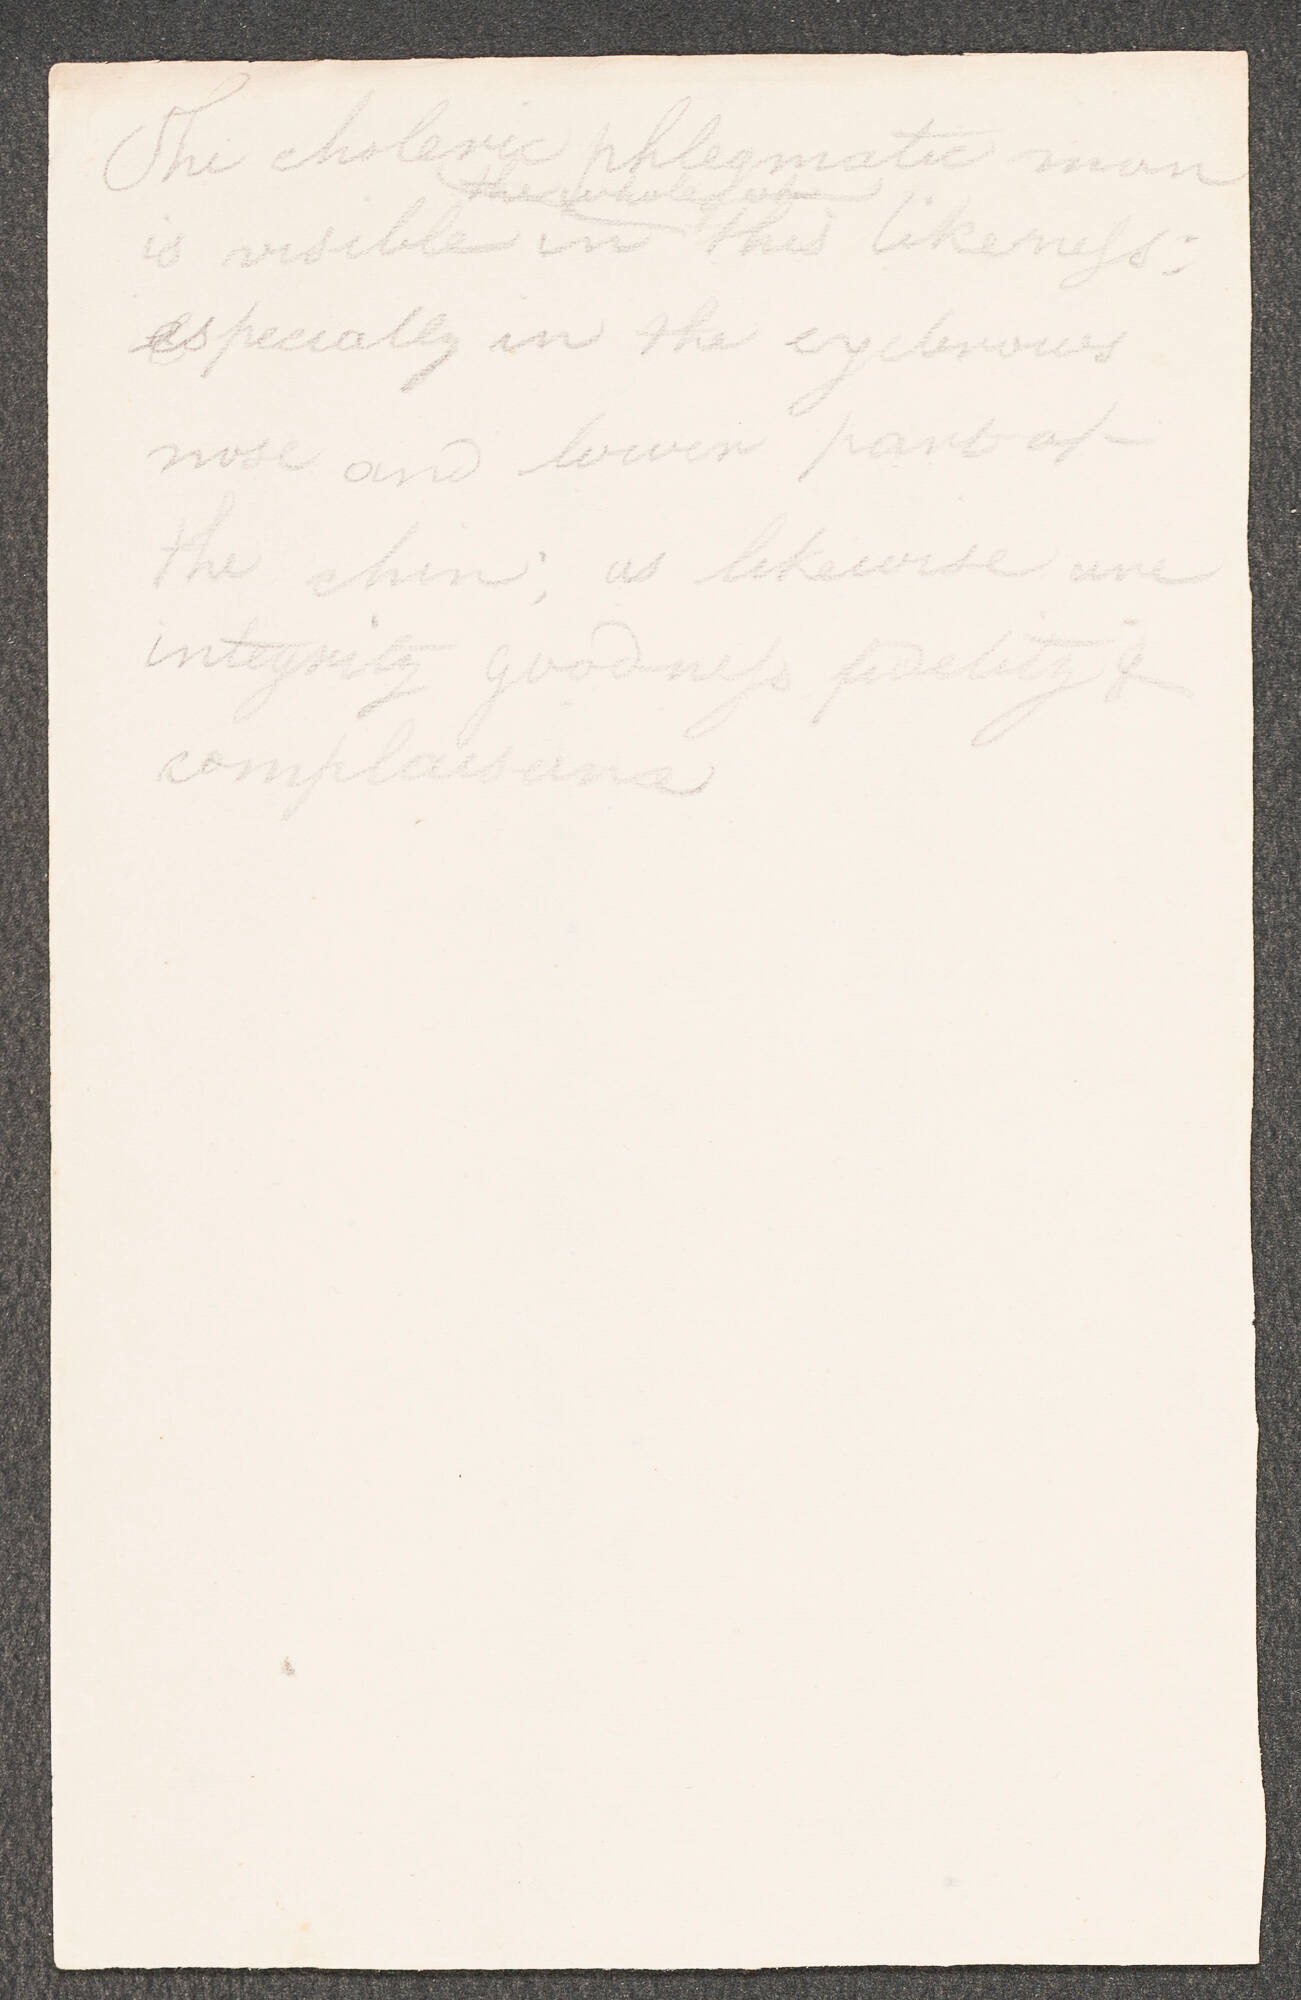 The choleric phlegmatic man
the whole of
is visible in this likeness;
especially in the eyebrows
nose and lower part of
the chin; as likewise are
integrity goodness fidelity &
complaisance